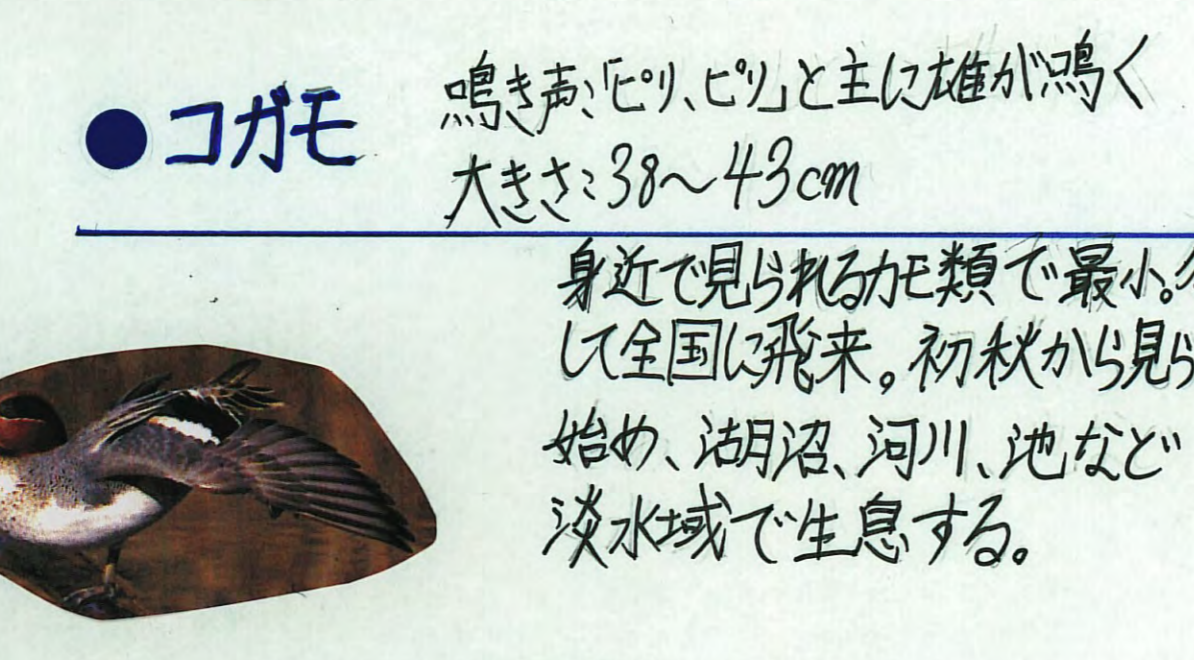 ●コガモ
鳴き声:「ピリ、ピリ」と主に雄が鳴く
大きさ:38〜43cm
身近で見られるカモ類で最小。
して全国に飛来。初秋から見ら
始め、湖沼、河川、池など
淡水域で生息する。